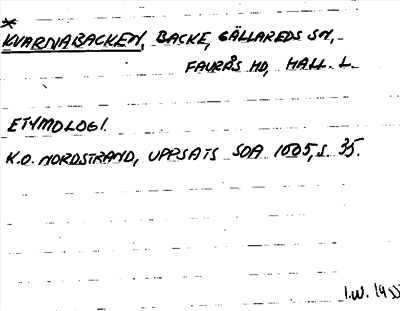 *
KVARNABACKEN, BACKE, GÄLLAREDS SN,
FAURÅS HD, HALL. L.
ETYMOLOGI.
K.O. NORDSTRAND, UPPSATS SOA 1005, S. 35.
I.W. 19